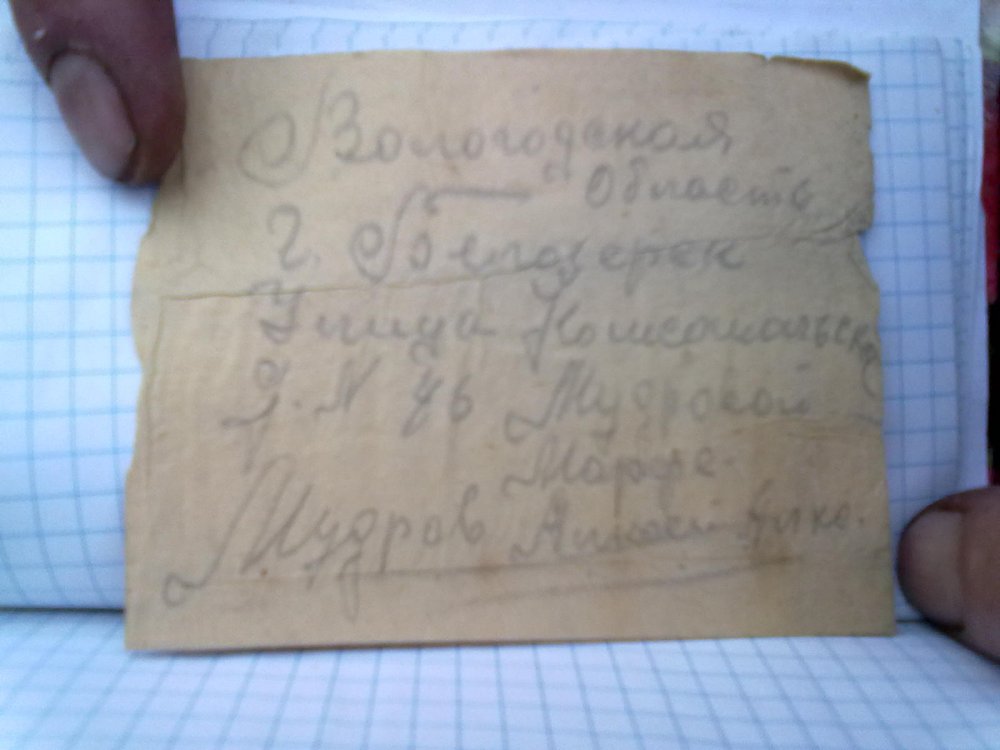 Вологодская
Область
г. Белозерск
Улица Комсомольская
Д. N 46 Мудровой
Марфе.
Мудров